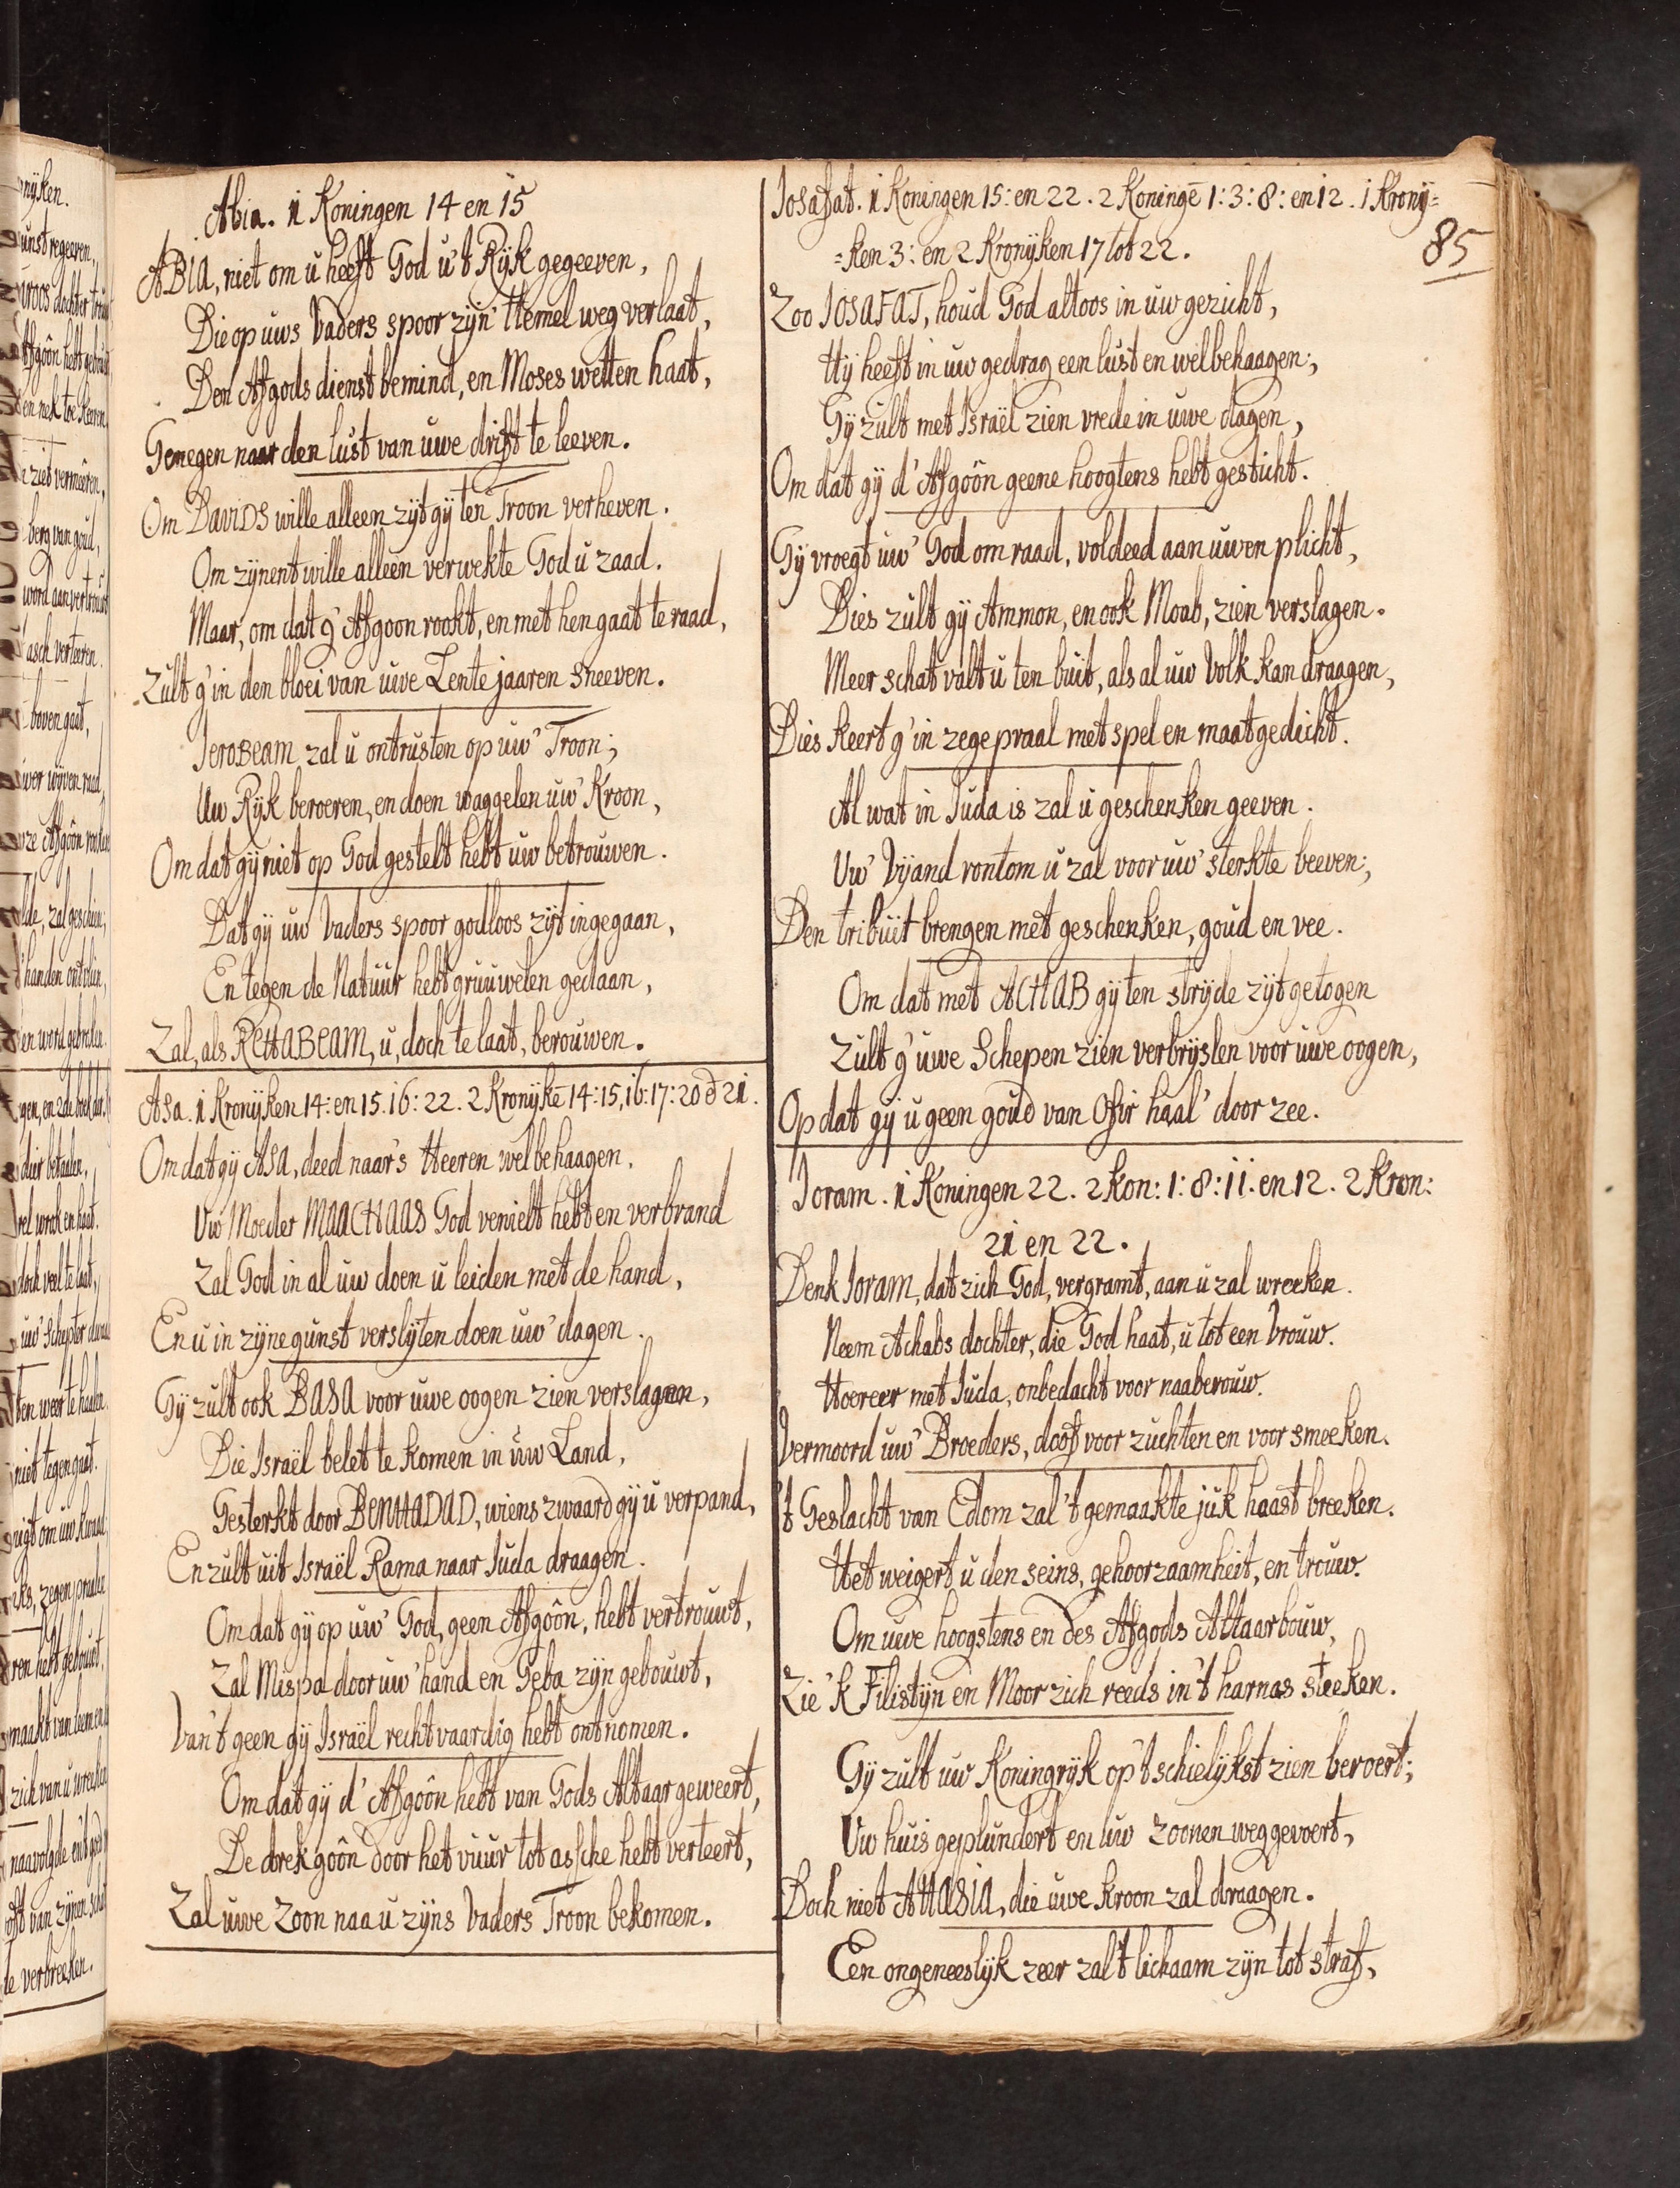 Abia. 1 Koningen 14 en 15
ABIA, niet om u heeft God u 't Ryk gegeeven,
Die op uws Vaders spoor zijn' Hemel weg verlaat,
Den Afgods dienst bemind, en Moses wetten haat,
Genegen naar den lust van uwe drift te leeven.
Om DAVIDS wille alleen zijt gij ten Troon verheven.
Om zijnent wille alleen verwekte God u zaad.
Maar, om dat g' Afgoon rookt, en met hen gaat te raad,
Zult g' in den bloei van uwe Lente jaaren sneeven.
JEROBEAM zal u ontrusten op uw' Troon;
Uw Ryk beroeren, en doen waggelen uw' Kroon,
Om dat gij niet op God gestelt hebt uw betrouwen.
Dat gij uw Vaders spoor godloos zijt ingegaan,
En tegen de Natuur hebt gruuwelen gedaan,
Zal, als REHABEAM, u, doch te laat, berouwen.
Asa. 1 Kronijken 14: en 15. 16: 22. 2 Kronijkē 14: 15, 16: 17: 20 & 21.
Om dat gij ASA, deed naar 's Heeren welbehaagen.
Uw Moeder MAACHAAS God vernielt hebt en verbrand
Zal God in al uw doen u leiden met de hand,
En u in zijne gunst verslijten doen uw' dagen.
Gij zult ook BASA voor uwe oogen zien verslagen,
Die Israël belet te komen in uw Land,
Gesterkt door BENHADAD, wiens zwaard gij u verpand,
En zult uit Israël Rama naar Juda draagen.
Om dat gij op uw' God, geen Afgôôn, hebt vertrouwt,
Zal Mispa door uw' hand en Geba zijn gebouwt,
Van 't geen gij Israël rechtvaardig hebt ontnomen.
Om dat gij d' Afgôôn hebt van Gods Altaar geweert,
De drekgôôn door het vuur tot assche hebt verteert,
Zal uwe Zoon naa u zijns Vaders Troon bekomen.
Josafat. 1 Koningen 15: en 22. 2 Koningē 1: 3: 8: en 12. 1 Kronij=
=ken 3: en 2 Kronijken 17 tot 22.
85
Zoo JOSAFAT, houd God altoos in uw gezicht,
Hij heeft in uw gedrag een lust en welbehaagen;
Gij zult met Israël zien vrede in uwe dagen,
Om dat gij d' Afgôôn geene hoogtens hebt gesticht.
Gij vroegt uw' God om raad, voldeed aan uwen plicht,
Dies zult gij Ammon, en ook Moab, zien verslagen.
Meer schat valt u ten buit, als al uw Volk kan draagen,
Dies keert g' in zegepraal met spel en maatgedicht.
Al wat in Juda is zal u geschenken geeven.
Uw' Vijand rontom u zal voor uw' sterkte beeven;
Den tribuit brengen met geschenken, goud en vee.
Om dat met ACHAB gij ten strijde zijt getogen
Zult g' uwe Schepen zien verbrijslen voor uwe oogen,
Op dat gij u geen goud van Ofir haal' door zee.
Joram. 1 Koningen 22. 2 kon: 1: 8: 11. en 12. 2 Kron:
21 en 22.
Denk JORAM, dat zich God, vergramt, aan u zal wreeken.
Neem Achabs dochter, die God haat, u tot een Vrouw.
Hoereer met Juda, onbedacht voor naaberouw.
Vermoord uw' Broeders, doof voor zuchten en voor smeeken.
't Geslacht van Edom zal 't gemaakte juk haast breeken.
Het weigert u den seins, gehoorzaamheit, en trouw.
Om uwe hoogstens en des Afgods Altaarbouw,
Zie 'k Filistijn en Moor zich reeds in 't harnas steeken.
Gij zult uw Koningrijk op 't schielijkst zien beroert;
Uw huis geplundert en uw zoonen weggevoert,
Doch niet AHASIA, die uwe kroon zal draagen.
Een ongeneeslijk zeer zal 't lichaam zijn tot straf,